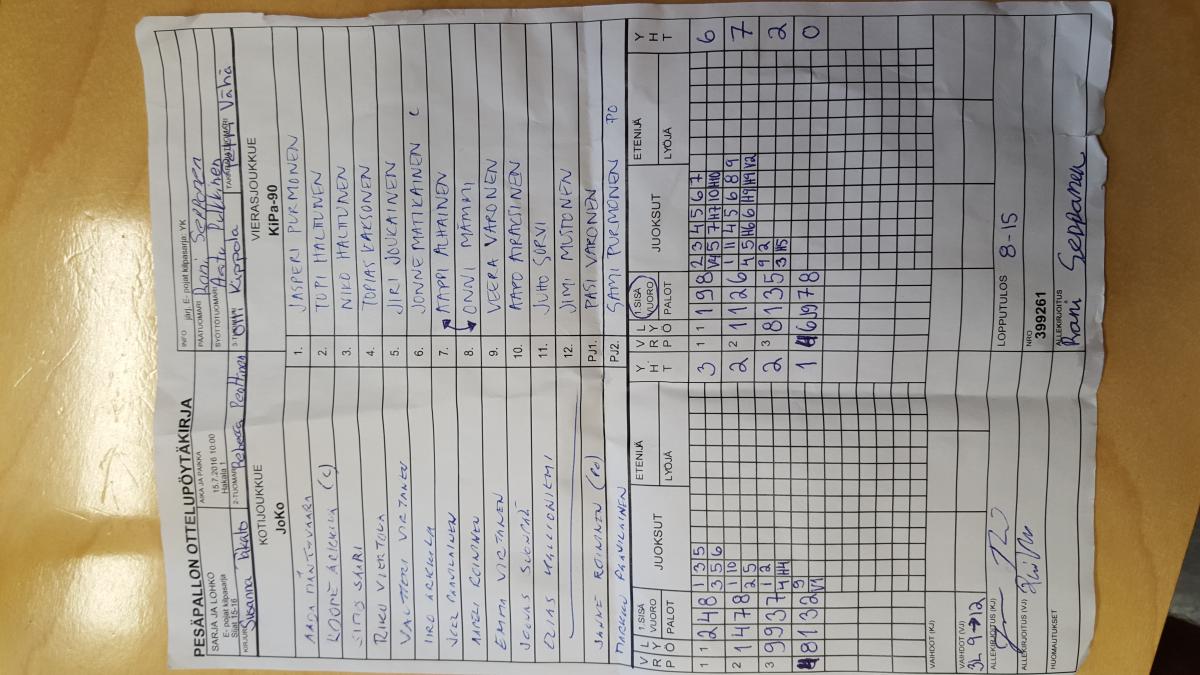 PESÄPALLON OTTELUPÖYTÄKIRJA
SARJA JA LOHKO
E- pojat kilpasarja
Sijat 15-16
AIKA JA PAIKKA
15.7.2016 10:00
Hakala 1
INFO järj. E- pojat kilpasarja: YK
PÄÄTUOMARI Rani Seppanen
SYÖTTÖTUOMARI Arttu Pulkkinen
KIRJURI Susanna
2-TUOMARI Rebecca Penttinen
3-TUOMARI Olli Kippola
TAKARAJATUOMARI Vähä
KOTIJOUKKUE
JoKo
VIERASJOUKKUE
KiPa-90
AADA MÄNTYVAARA
1. JASPERI PURMONEN
(C)
2. TOPI HALTTUNEN
SAARI
3. NIKO HALTTUNEN
RIKU VIERTOLA
4. TOPIAS KAKSONEN
VALTTERI VIRTANEN
5. JIRI JOUKAINEN
IIRO ARKKILA
6. JONNE MATIKAINEN C
NEEL PAAVILAINEN
7. AAPPI ALHAINEN
ANSELI ROININEN
8. ONNI MÄMMI
EMMA VIRTANEN
9. VEERA VARONEN
10. AAPO AIRAKSINEN
ELIAS HALLIONIEMI
11. JUHO SORVI
12. JIMI MUTONEN
JANNE ROININEN (PO)
PJ1. PASI VARONEN
MARKKU PAAVILAINEN
PJ2. SAMI PURMONEN PO
V R P
L Y Ö
1.SISÄ VUORO
PALOT
JUOKSUT
ETENIJÄ
LYÖJÄ
Y H T
V R P
L Y Ö
1.SISÄ VUORO
PALOT
JUOKSUT
ETENIJÄ
LYÖJÄ
Y H T
1 1 2 4 8 1 3 5 3
3 5 6
1 1 1 9 8 2 3 4 5 6 7 6
V4 5 7 H7 10 H10
2 1 4 7 8 1 10 2
2 5
2 2 1 1 2 6 1 11 4 5 6 8 9 7
4 5 H6 6 H9 H9 V2
3 9 9 3 7 1 2 2
4 H4
2 3 8 1 3 5 9 2 2
3 H5
4 8 1 3 2 9 1
V1
4 6 5 9 7 8 0
VAIHDOT (KJ)
VAIHDOT (VJ)
3L 9→12
LOPPUTULOS 8-15
ALLEKIRJOITUS (KJ)
ALLEKIRJOITUS (VJ)
NRO
399261
HUOMAUTUKSET
ALLEKIRJOITUS
Rani Seppanen